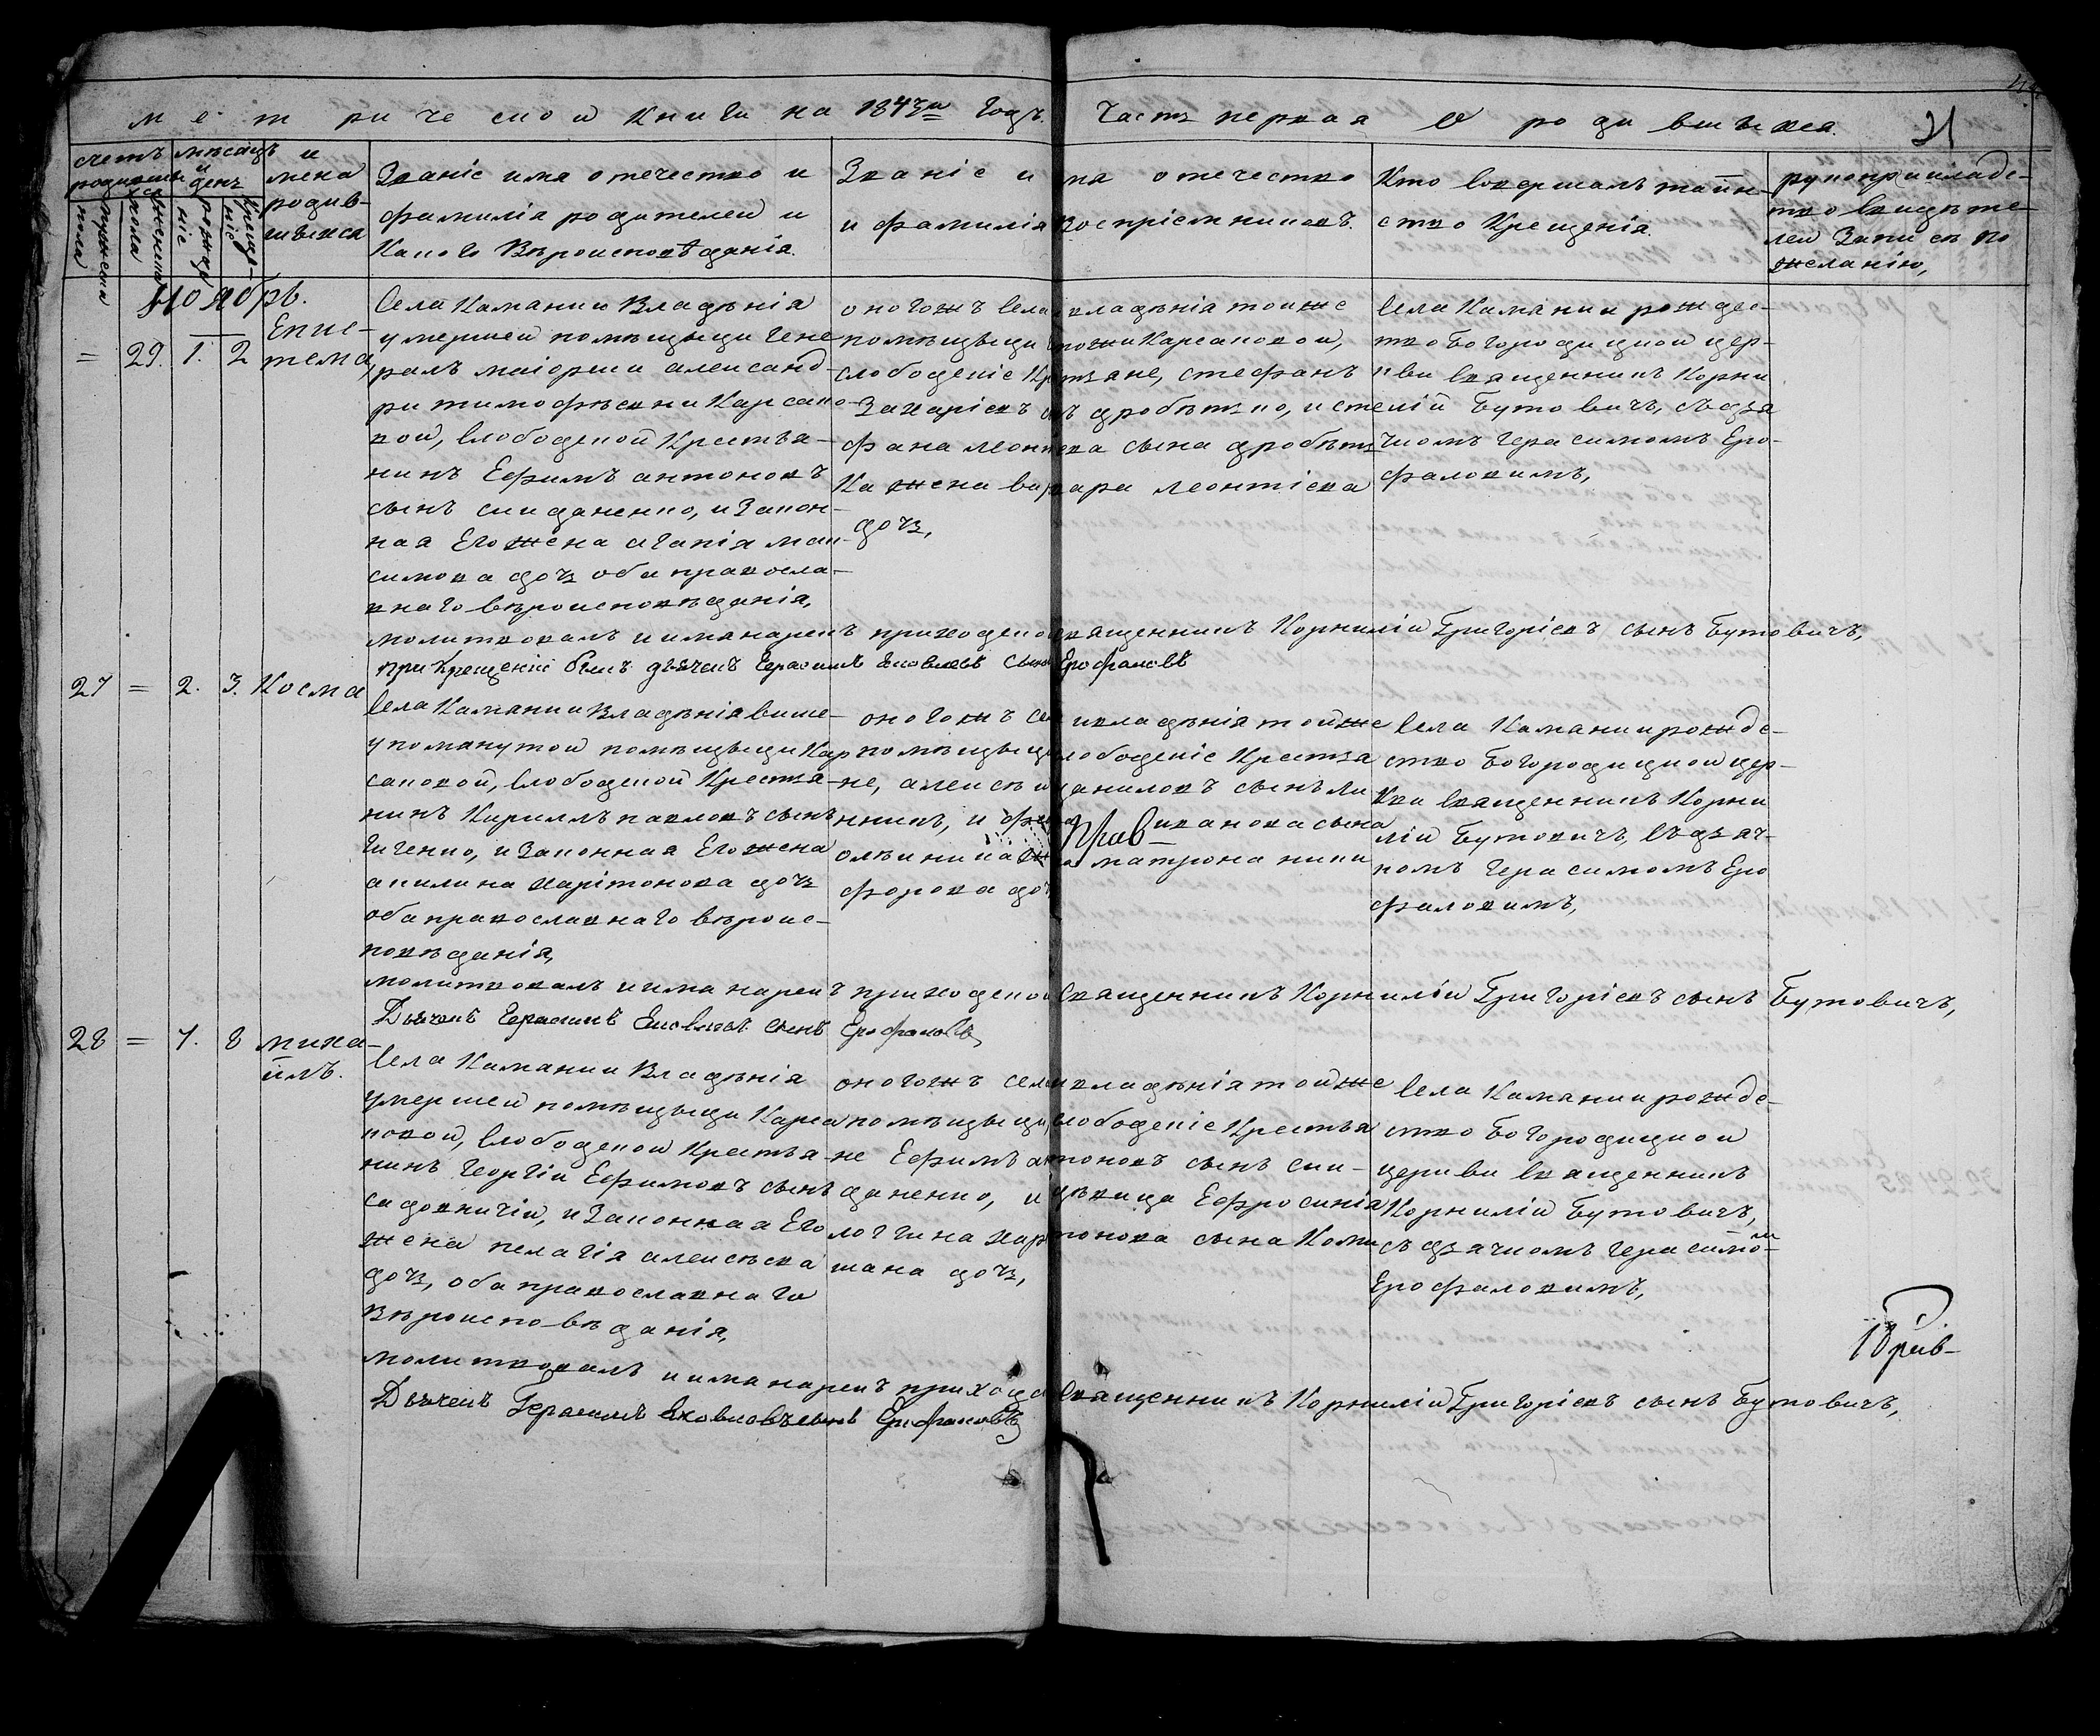 метрической книги на 1843й Годъ. Часть первая о родившихся. 21
счетъ родившихся
мужеска пола
женска пола
месяцъ и день
рожденіе
крещеніе
имена родившихся
Званіе имя отечество и
фамилія родителей и
Какого Вѣроисповѣданія.
Званіе имя отечество
и фамилія воспріемниковъ.
Кто Совершалъ таин-
ство Крещенія.
рукоприкладс-
тво Свидѣте-
лей Записъ по
желанію,
Ноябрь.
= 29. 1. 2
Епис-
тема,
Села Камянки Владѣнія
умершей помѣщыци Гене
ралъ маіорши александ-
ри тимофѣевни Карсако-
вой, Слободской Крестья-
нинъ Ефимъ антоновъ
сынъ скиданенко, и Закон-
ная Его жена агапія мак-
симова дочь оба правосла-
внаго вѣроисповѣданія,
оногожъ Села владѣнія тойже
помѣщыци Карсаковой,
слободскіе Крестяне, стефанъ
Захаріевъ сынъ дробѣтько, и сте
фана леонтіева сына дробѣтъ
ка жена варвара леонтіева
дочь,
Села Камянки рождес-
тво Богородицкой цер-
кви Священникъ Корни
лій Бутовичъ, съ дья
чкомъ Герасимомъ Еро-
фаловимъ,
молитвовалъ и имя нарекъ приходской Священникъ Корнилій Григоріевъ сынъ Бутовичъ,
при Крещеніи былъ дьячекъ Герасимъ Яковлевъ сынъ Ерофаловъ
27 = 2. 3. Косма
Села Камянки Владѣнія више-
упомянутой помѣщыци Кар
саковой, Слободской Крестья-
нинъ Кириллъ павловъ сынъ
Гиченко, и Законная Его жена
акилина харітонова дочь
оба православнаго вѣроис-
повѣданія,
оногожъ села и владѣнія тойже
помѣщыци слободскіе Крестья
не, алексѣй даниловъ сынъ ли
нникъ, и иванова сына
олѣйника жена матрона ники
форова дочь
Села Камянки рожде-
ство Богородицкой цер-
кви Священникъ Корни
лій Бутовичъ, Съ дьяч-
комъ Герасимомъ Еро
фаловимъ,
молитвовалъ и имя нарекъ приходской Священникъ Корнилій Григоріевъ сынъ Бутовичъ,
Дьячекъ Герасимъ Яковлевъ сынъ Ерофаловъ
28 = 7. 8 миха-
илъ.
Села Камянки Владѣнія
умершей помѣщыци Карса
ковой, Слободской Крестья-
нинъ Георгій Ефимовъ сынъ
садовничій, и Законная Его
жена пелагія алексѣева
дочь, оба православнаго
Вѣроисповѣданія,
оногожъ села и владѣнія тойже
помѣщыци, Слободскіе Крестья
не Ефимъ антоновъ сынъ ски-
даненко, и дѣвица Ефросинія
логгина харитонова сына Коли
шана дочь,
Села Камянки рожде-
ство Богородицкой
церкви Священникъ
Корнилій Бутовичъ,
съ дьячкомъ Герасимомъ
Ерофаловимъ,
молитвовалъ и имя нарекъ приход Священникъ Корнилій Григоріевъ сынъ Бутовичъ,
Дьячекъ Герасимъ Яковлевъ сынъ Ерофаловъ